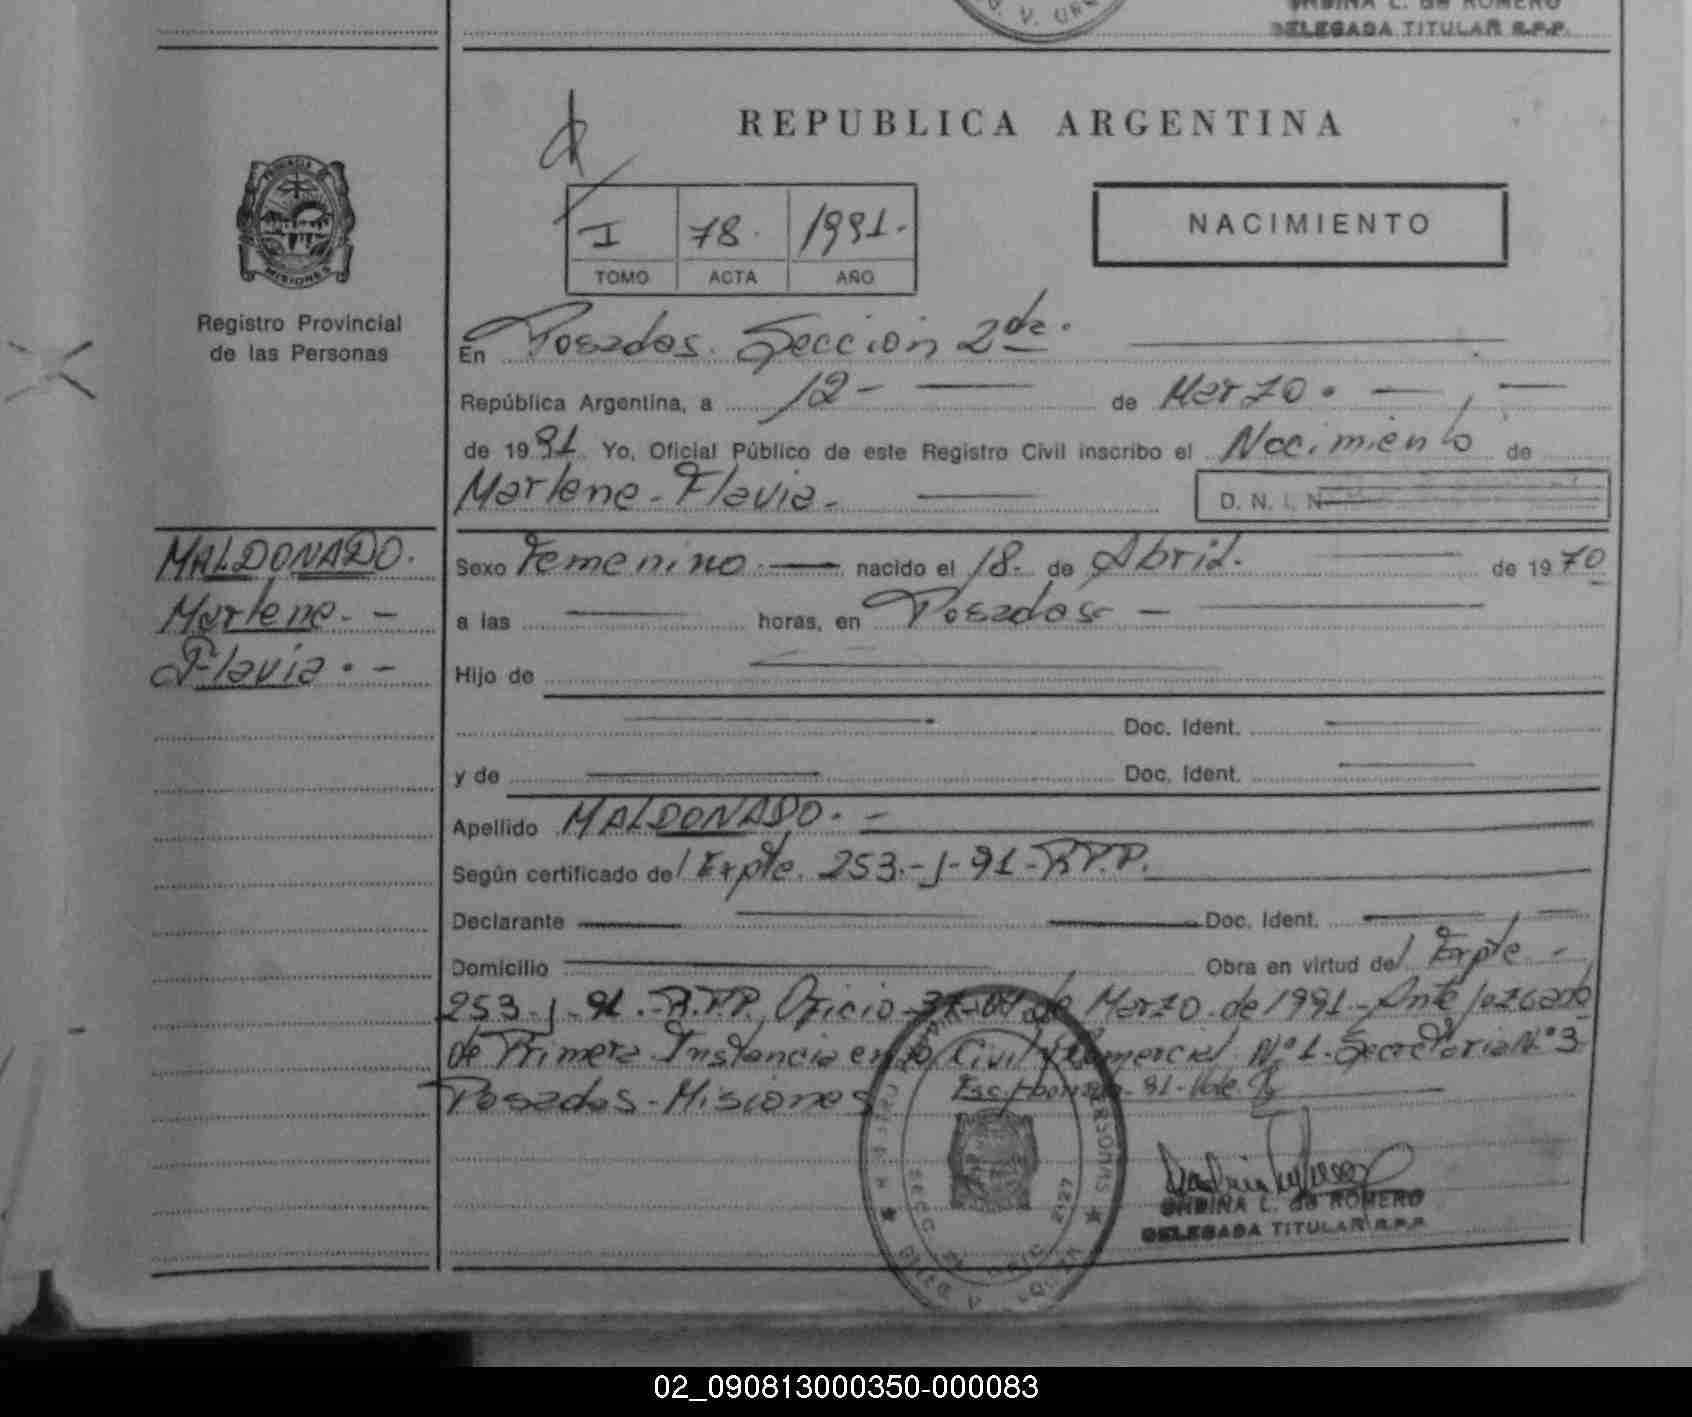 ONDINA L. de ROMERO
DELEGADA TITULAR R.P.P.
REPUBLICA ARGENTINA
PROVINCIA DE
MISIONES
I 78. 1991.
TOMO ACTA AÑO
NACIMIENTO
Registro Provincial
de las Personas
En Posadas. Sección 2da.
República Argentina, a 12 - de Marzo.
de 1991 Yo, Oficial Público de este Registro Civil inscribo el Nacimiento de
Marlene - Flavia -
D. N. I. N
MALDONADO.
Marlene. -
Flavia. -
Sexo Femenino. nacido el 18. de Abril. de 1970
a las horas, en Posadas -
Hijo de
Doc. Ident.
y de Doc. Ident.
Apellido MALDONADO. -
Según certificado del Expte. 253.-J-91-R.P.P.
Declarante Doc. Ident.
Domicilio Obra en virtud del Expte -
253-J-91.-R.P.P. Oficio de Marzo de 1991 - Ante Juzgado
de Primera Instancia en lo Civil y Comercial Nº 1 - Secretaria Nº 3
Posadas - Misiones
91 - Vale.
ONDINA L. de ROMERO
DELEGADA TITULAR R.P.P.
02_090813000350-000083